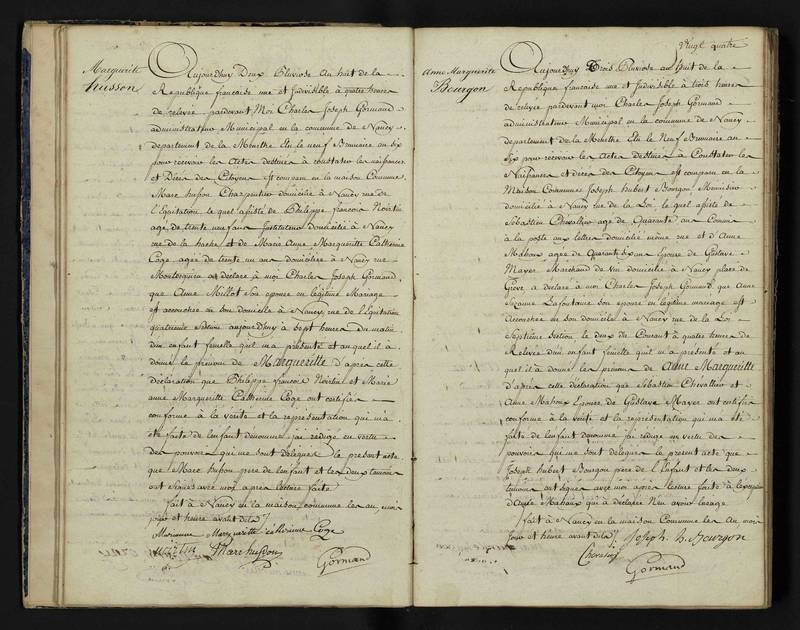 Marguerite
husson
Aujourd'huy Deux Pluviose An huit de la
République francaise une et Indivisible à quatre heures
de relevée pardevant Moi Charles Joseph Gormand
administrateur Municipal en la commune de Nancy
departement de la Meurthe Elu le neuf Brumaire an six
pour recevoir les Actes destinés à constater les naissances
et Décès des Citoyens Est comparu en la maison Commune
Marc husson Charpentier domicilié à Nancy rue de
l'Equitation, le quel assisté de Philippe françois Noirtin
agé de trente ans Instituteur domicilié à Nancy
rue de la hache et de Marie Anne Marguerite Catherine
Coge agée de trente un ans domiciliée à Nancy rue
Montesquieu a déclaré à moi Charles Joseph Gormand
que Anne Millot Son épouse en légitime Mariage
est accouchée en son domicile à Nancy, rue de l'Equitation
quatrieme Section aujourd'huy à sept heures du matin
d'un enfant femelle qu'il m'a présenté et auquel il a
donné le prénom de Margueritte D'après cette
déclaration que Philippe françois Noirtin et Marie
anne Marguerite Catherine Coge ont certifiée
conforme à la vérité et la représentation qui m'a
été faite de l'enfant dénommé j'ai rédigé en vertu
des pouvoirs qui me sont délégués le présent acte
que Marc husson père de l'enfant et les deux temoins
ont signés avec moi après lecture faite
fait à Nancy en la maison commune les an mois
jour et heure avant dits
Marianne Marguerite Catherine Coge
Marc husson
Gormand
Vingt quatre
Anne Marguerite
Bourgon
Aujourd'huy Trois Pluviose an huit de la
République francaise une et Indivisible à trois heures
de relevée pardevant moi Charles Joseph Gormand
administrateur Municipal en la commune de Nancy
departement de la Meurthe Elu le Neuf Brumaire an
Six pour recevoir les Actes destinés à Constater les
Naissances et décès des Citoyens Est comparu en la
Maison Commune Joseph hubert Bourgon Menuisier
domicilié à Nancy rue de la Loi le quel assisté de
Sébastien Chevallier agé de Quarante ans Commis
à la poste aux lettres domicilié même rue et d'Anne
Mahaux agée de Quarante six ans Epouse de Gustave
Mayer Marchand de Vin domiciliée à Nancy place de
Grève, a déclaré à moi Charles Joseph Gormand, que Anne
Suzanne Lafontaine son épouse en légitime mariage est
Accouchée en son domicile à Nancy rue de la Loi
Septième Section le deux du Courant à quatre heures de
Relevée d'un enfant femelle qu'il m'a présenté et au
quel il a donné les prénoms de Anne Margueritte
d'après cette déclaration que Sébastien Chevallier et
Anne Mahaux Epouse de Gustave Mayer ont certifiée
conforme à la vérité et la représentation qui m'a été
faite de l'enfant dénommé j'ai rédigé en vertu des
pouvoirs qui me sont délégués le présent acte que
Joseph hubert Bourgon père de l'Enfant et les deux
temoins ont signés avec moi après lecture faite à l'exception
d'Anne Mahaux qui a déclaré n'en avoir l'usage
fait à Nancy en la maison Commune les An, mois
jour et heure avant dits Joseph h. Bourgon
Gormand